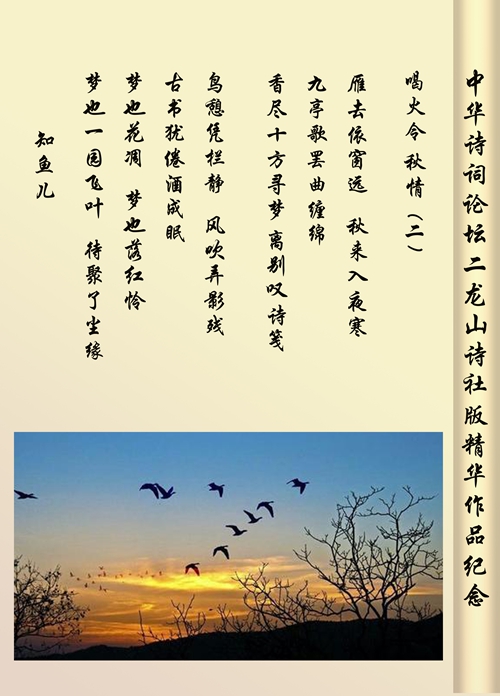 中华诗词论坛二龙山诗社版精华作品纪念
喝火令 秋情（二）
雁去依窗远　秋来入夜寒
九亭歌罢曲缠绵
香尽十方寻梦 离别叹诗笺
鸟憩凭栏静　风吹弄影残
古书犹倦酒成眠
梦也花凋　梦也落红怜
梦也一园飞叶　待聚了尘缘
知鱼儿